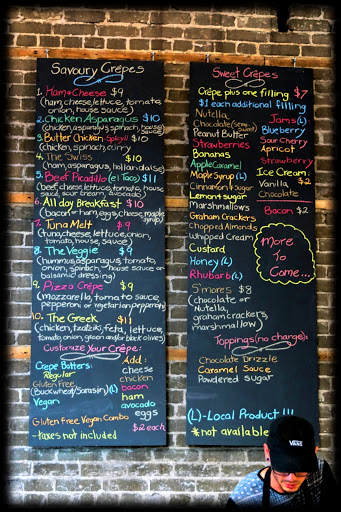 Savoury Crêpes
1. Ham+Cheese $9
(ham, cheese, lettuce, tomato
onion, house sauce)
2. Chicken Asparagus $10
(chicken, asparagus, spinach, house sauce)
3. Butter Chicken Spicy!! $10
(chicken, spinach, curry)
4. The Swiss $10
(ham, asparagus, hollandaise)
5. Beef Picadillo (el Taco) $11
(beef, cheese, lettuce, tomato, house
sauce, sour cream, avocado)
6. All day Breakfast $10
(bacon or ham, eggs, cheese, maple
syrup)
7. Tuna Melt $9
(tuna, cheese, lettuce, onion,
tomato, house, sauce)
8. The Veggie $9
(hummus, asparagus, tomato,
onion, spinach, house sauce or
balsamic dressing)
9. Pizza Crêpe $9
(mozzarella, tomato sauce
pepperoni or vegetarian pepperoni)
10. The Greek $11
(chicken, tzatziki, feta, lettuce,
tomato, onion, green and/or black olives)
Customize Your Crêpe:
Crepe Batters:
Regular
Gluten Free
(Buckwheat/Sarasin)(L)
Vegan
Gluten free Vegan Combo
-taxes not included
Add:
cheese
chicken
bacon
ham
avocado
eggs
$2 each
Sweet Crêpes
Crêpe plus one filling $7
$1 each additional filling
Nutella
Chocolate (semi-sweet)
Peanut Butter
Strawberries
Bananas
Apple Caramel
Maple Syrup (L)
Cinnamon & Sugar
Lemon & Sugar
Marshmallows
Graham Crackers
Chopped Almonds
Whipped Cream
Custard
Honey (L)
Rhubarb (L)
Jams (L)
Blueberry
Sour Cherry
Apricot
Strawberry
Ice Cream:
Vanilla $2
Chocolate
Bacon $2
More
To
Come...
S'mores $8
(chocolate or
Nutella,
graham crackers,
marshmallow)
Toppings (no charge):
Chocolate Drizzle
Caramel Sauce
Powdered sugar
(L)-Local Product !!!
*not available
VANS